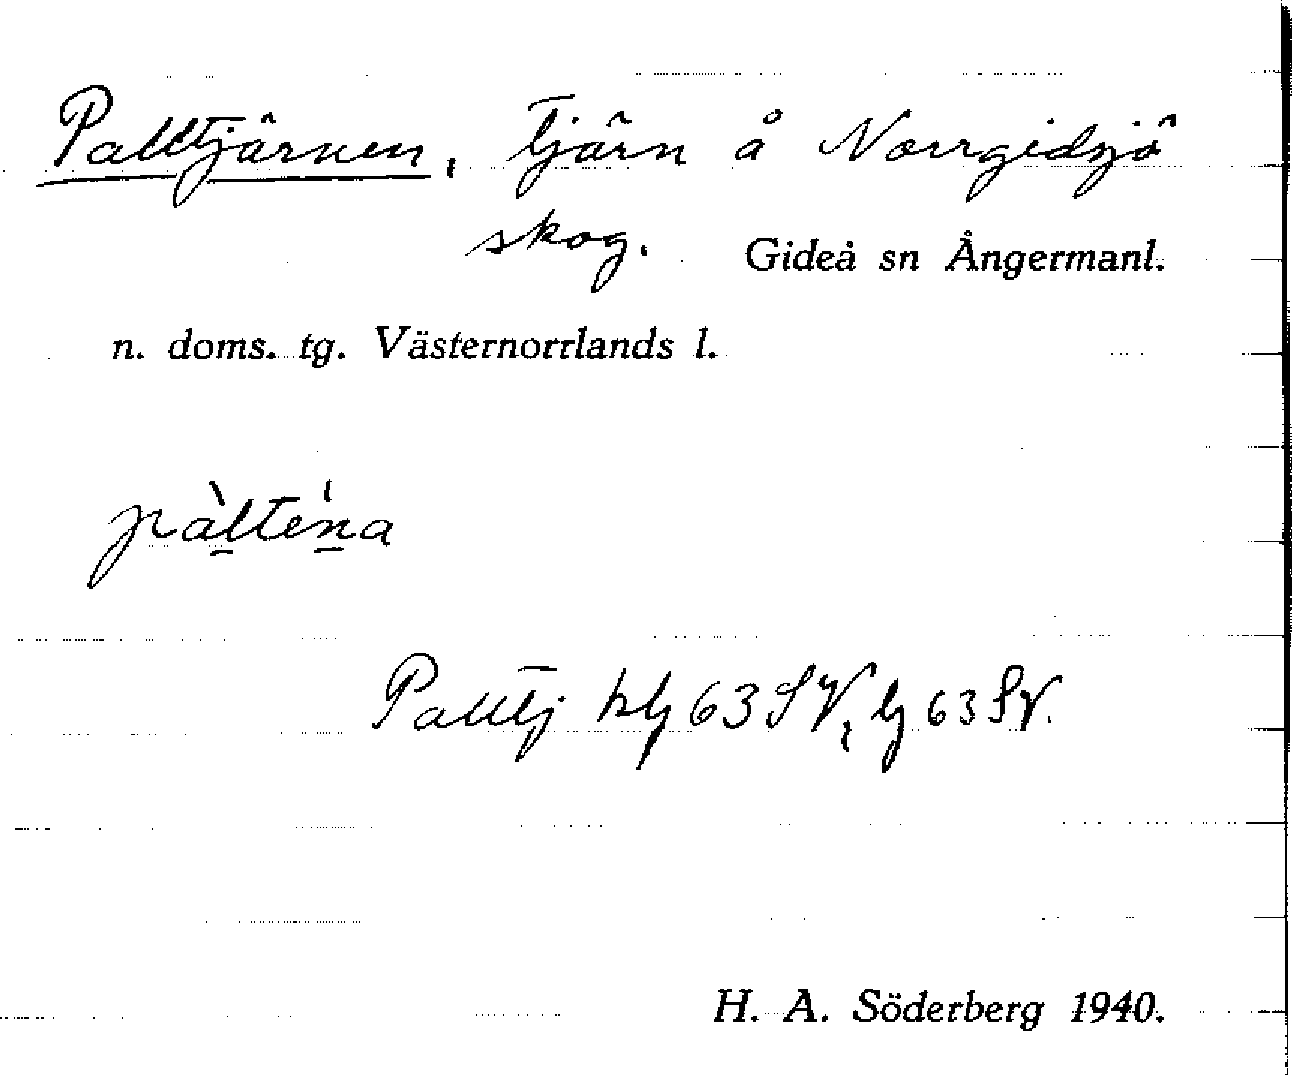 Palttjärnen, tjärn å Norrgidsjö
skog. Gideå sn Ångermanl.
n. doms. tg. Västernorrlands l.
pàlte̍na
Palttj 63 SV, 63 SV.
H. A. Söderberg 1940.